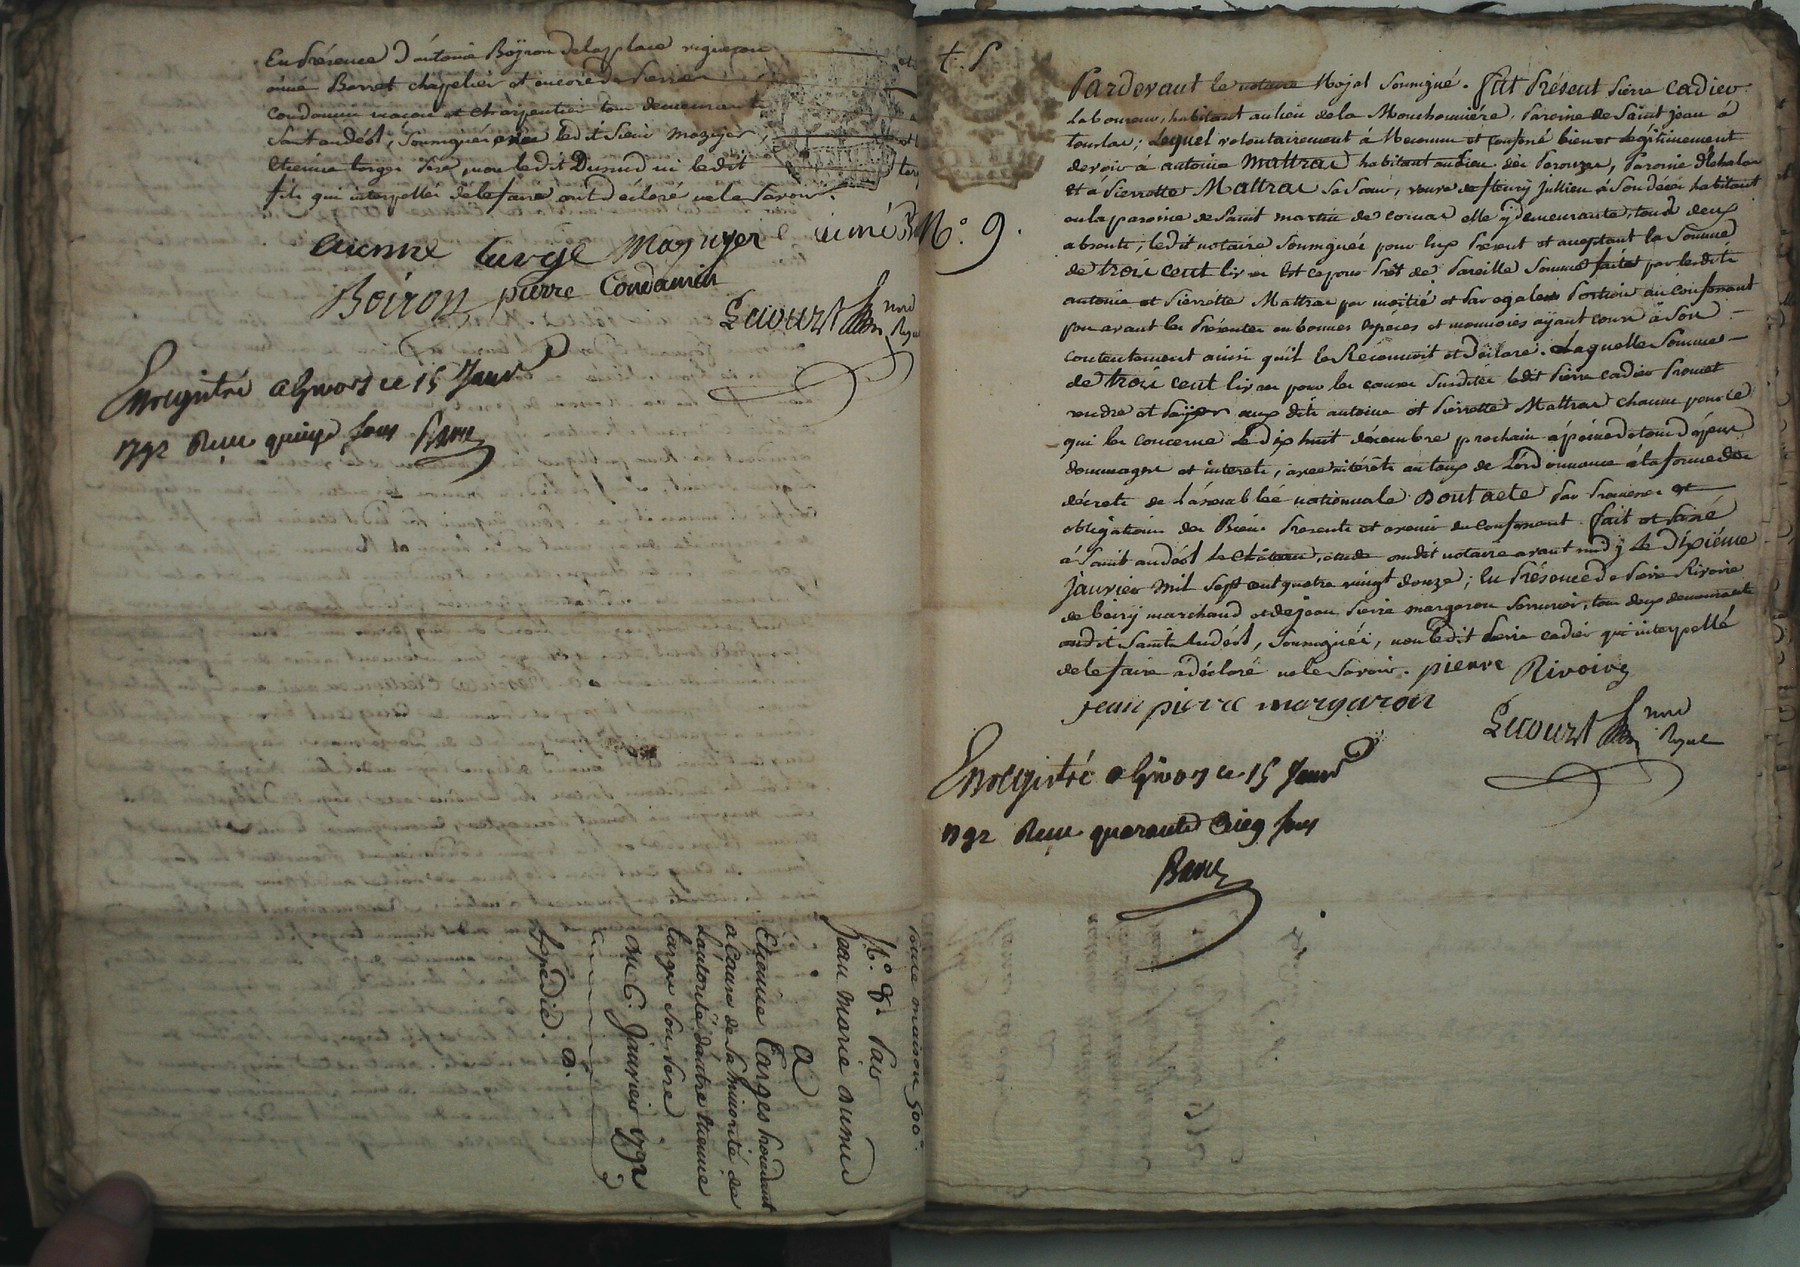 En présence d'antoine Boÿron delaplace vigneron
aimé Barret chapelier et encore de Pierre
Condamin maçon et charpentier tous demeurants
Saint andéol, soussignés avec ledit Sieur Mazuyer
Etienne Large Père, non ledit Dumud ni ledit
fils qui interpellés de le faire ont déclaré ne le savoir.
etienne large Mazuyer aimé
Boiron pierre Condamin
Lecourt
Enregistré a Givors ce 15 Janv
1792 Reçu quinze sous Barre
toute maison 500
N.° 8. Par
Jean Marie Dumud
a
Etienne Large procedant
a cause de sa minorité de
L'autorité d'autre Etienne
Large Son Père
Du 6. Janvier 1792
Expédié.
t. S
N.° 9.
Pardevant le notaire Royal soussigné. fut Présent Pierre Cadier
Laboureur, habitant au lieu de la Mouchonnière, Paroisse de Saint Jean à
touslas; Lequel volontairement à Reconnu et confessé bien et légitimement
devoir à antoine Mattrat habitant au lieu des Perouzes, Paroisse d'Echalas
et à Pierrette Mattrat sa sœur, veuve de fleury Jullien à son décès habitant
en la paroisse de Saint martin de cornas elle y demeurante, tous deux
absents, ledit notaire soussigné pour eux présent et acceptant la Somme
de trois cent livres Et ce pour Prêt de Pareille Somme faite par lesdits
antoine et Pierrette Mattrat par moitié et par egale Portion au confessant
peu avant les Présentes en bonnes espèces et monnoies aÿant cours à son
contentement ainsi qu'il le Reconnoit et déclare. Laquelle Somme
de trois cent livres pour les causes Susdites ledit Pierre cadier Promet
rendre et Payer aux dits antoine et Pierrette Mattrat chacun pour ce
qui les concerne Le dix huit décembre prochain à peine de tous dépens
dommages et interets, avec intérêts au taux de L'ordonnance à la forme des
décrets de l'assemblée nationale Dont acte Par Promesses et
obligations des Biens Presents et avenir du confessant. fait et Passé
à Saint andéol Le château, etude dudit notaire avant midÿ Le Dixième
Janvier mil sept cent quatre vingt douze; En Présence de Pierre Rivoire
de boiry marchand et de jean pierre margaron Serrurier, tous deux demeurants
audit Saint Andéol, Soussignés, non ledit Pierre cadier qui interpellé
de le faire a déclaré ne le Savoir. pierre Rivoire
jean pierre margaron
Lecourt
Enregistré a Givors ce 15 Janv
1792 Reçu quarante Cinq sous
Barre